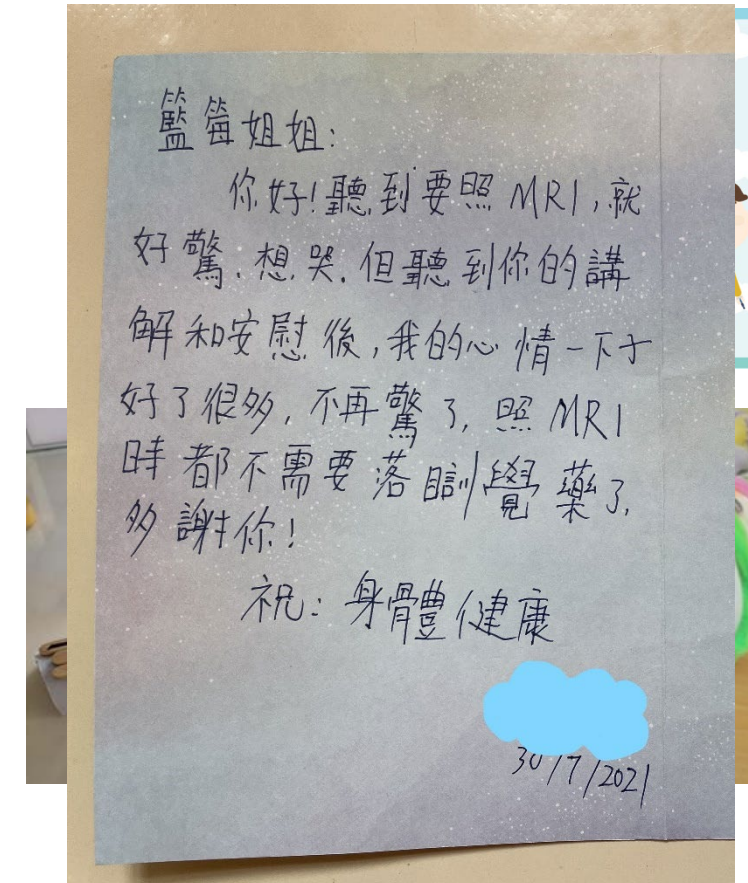 籃莓姐姐:
你好!聽到要照MRI,就
好驚.想哭.但聽到你的講
解和安慰後,我的心情一下子
好了很多,不再驚了,照MRI
時都不需要落瞓覺藥了,
多謝你!
祝:身體健康
30/7/2021